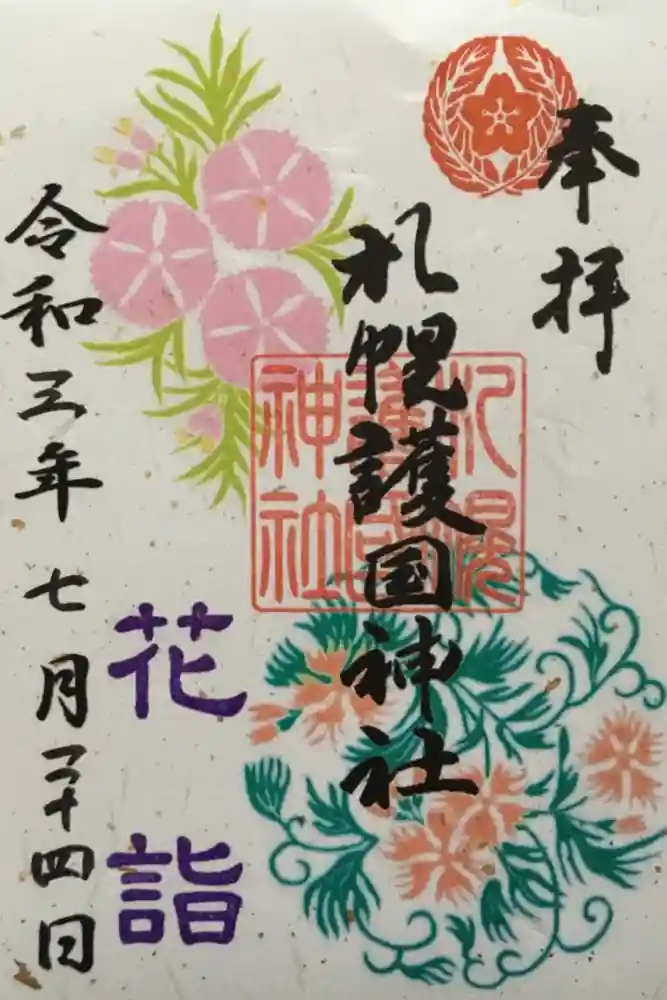 奉拝
札幌護国神社
札幌護國神社
花詣
令和三年七月二十四日